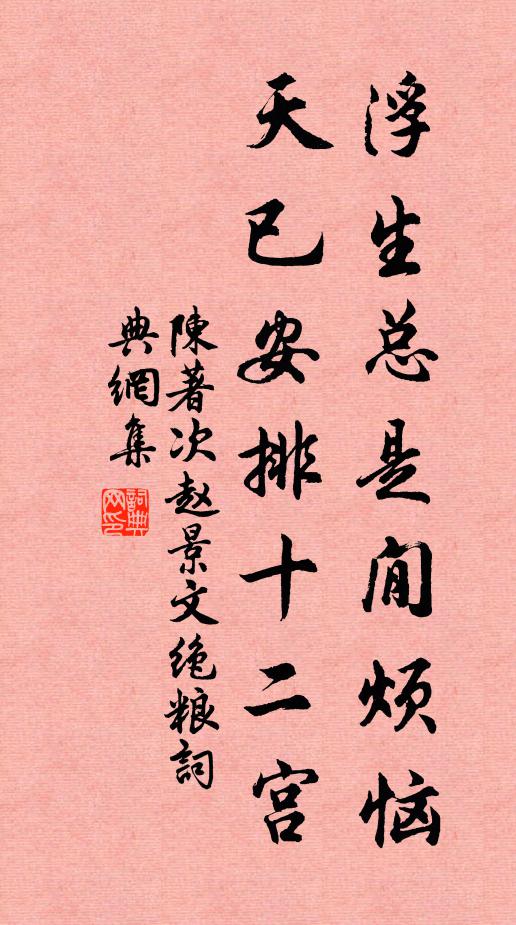 浮生总是闲烦恼
天已安排十二宫
陳著次赵景文绝粮詞
典網集
詞典
网印